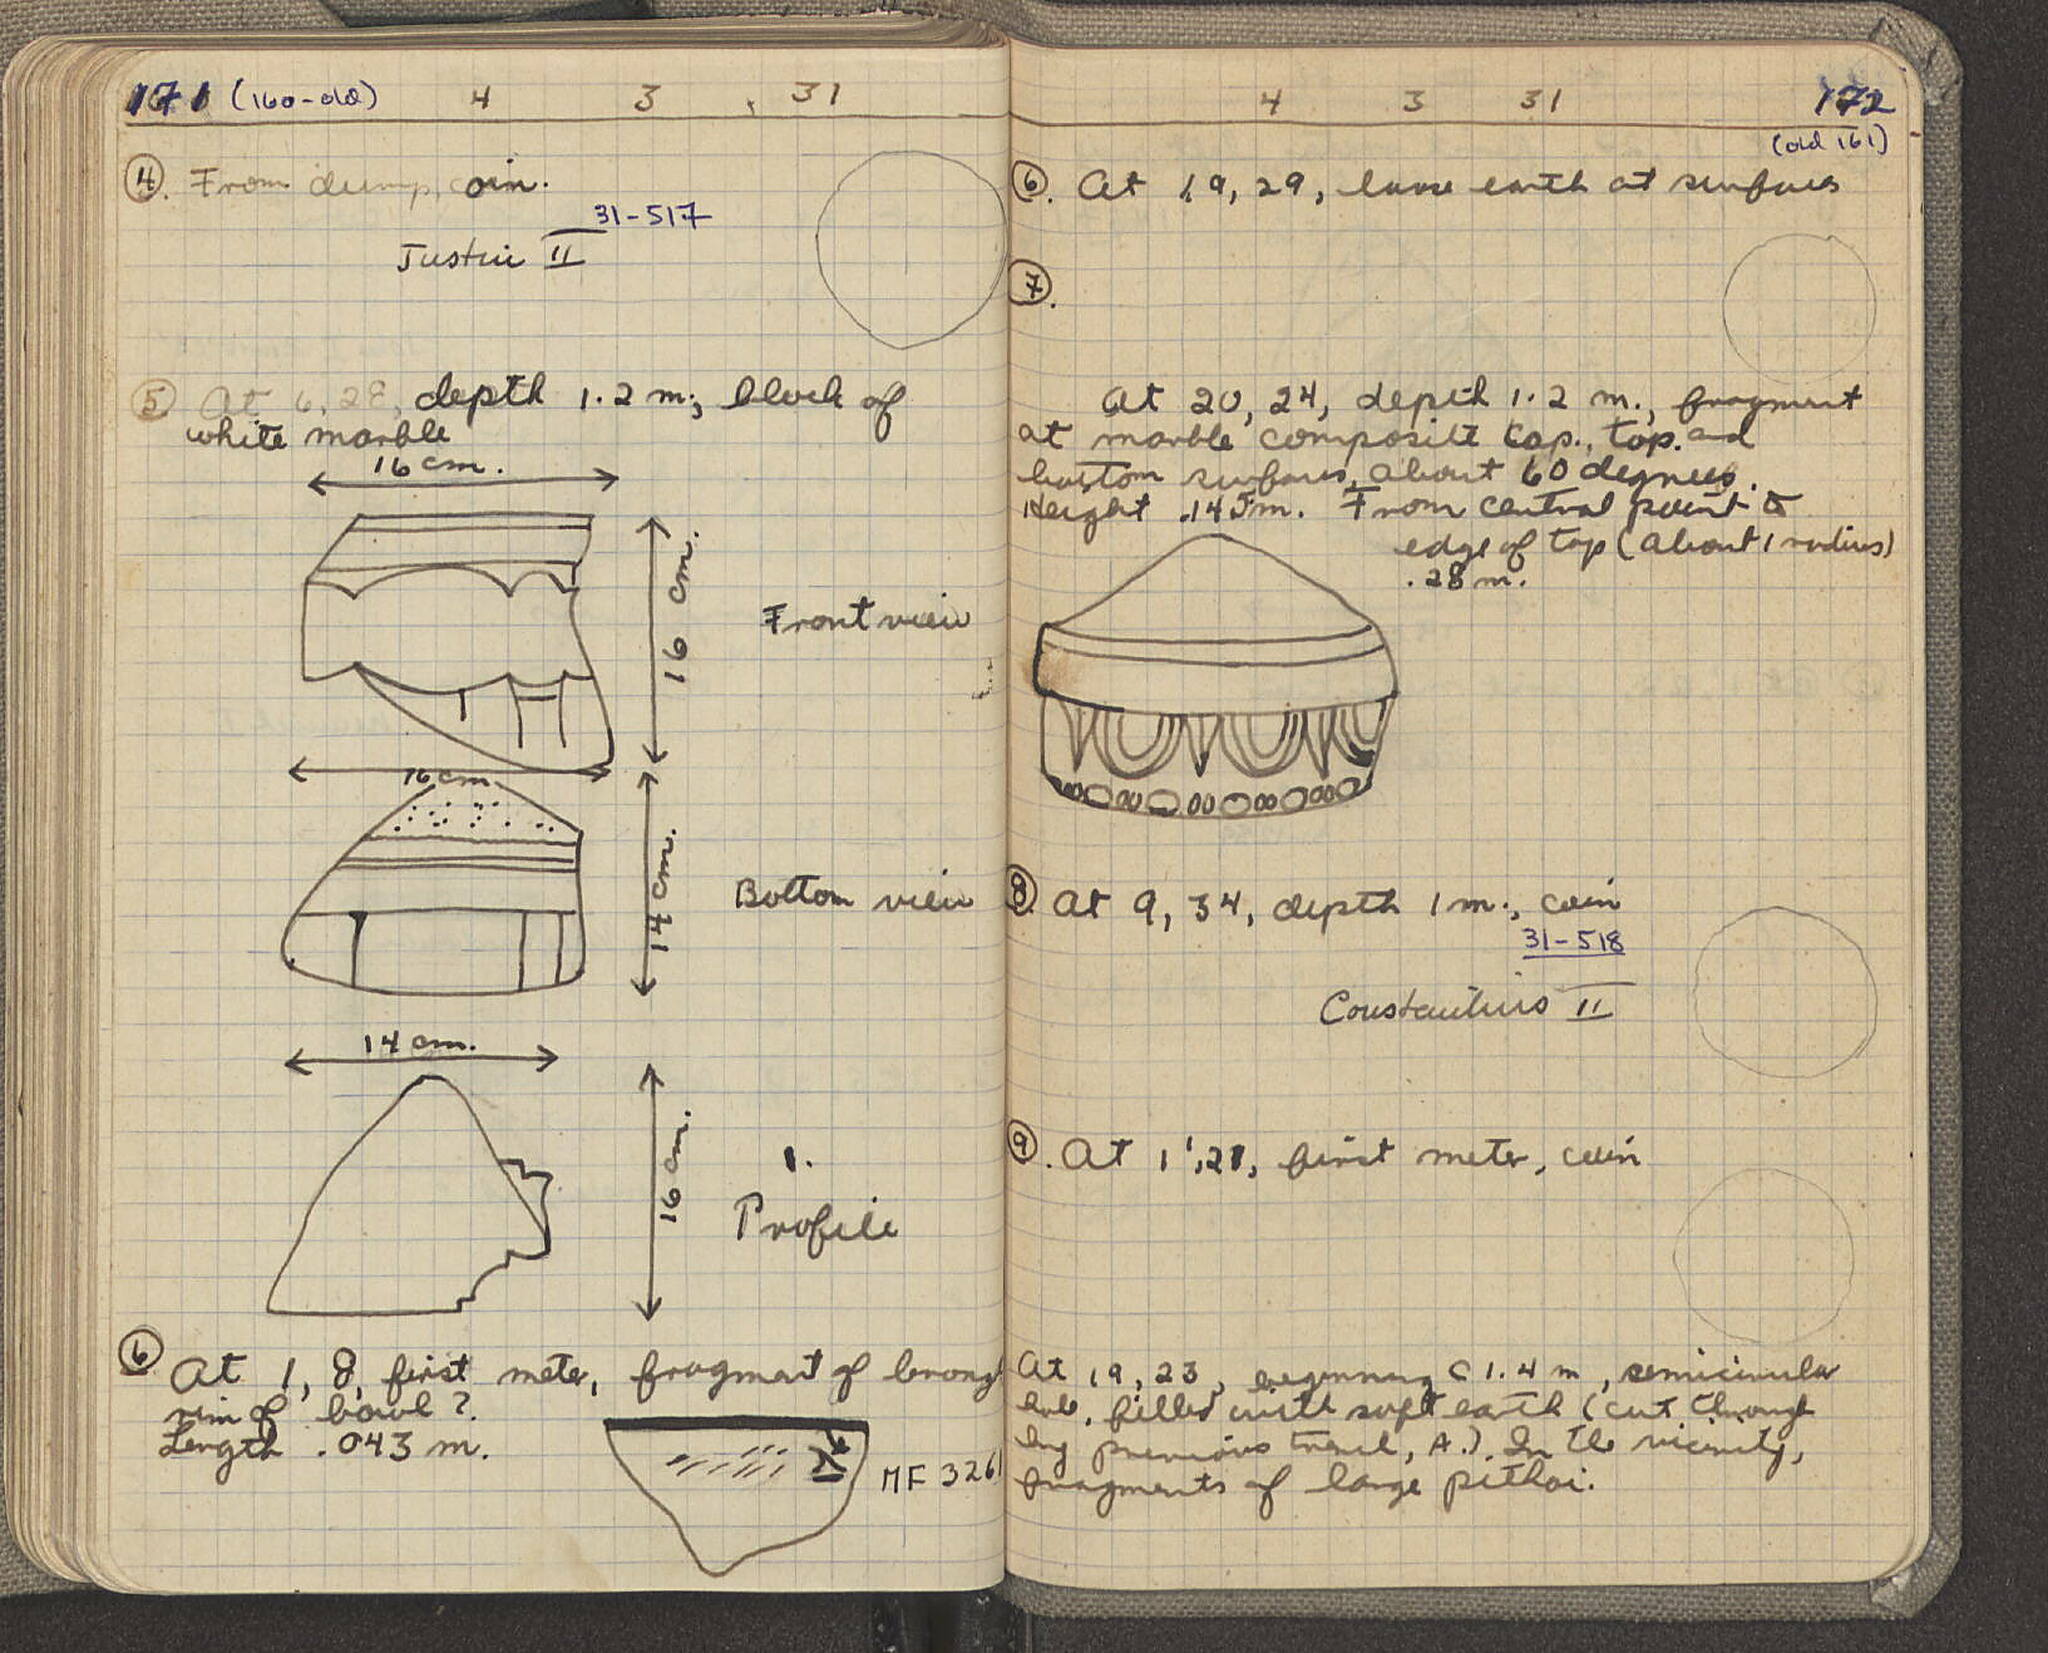 171 (160-old) 4 3 31
4. From dump, coin.
31-517
Justin II
5 At 6, 28, depth 1.2 m; block of
white marble
16 cm.
16 cm.
Front view
16 cm
14 cm.
Bottom view
14 cm.
16 cm.
1.
Profile
6 At 1, 8, first meter, fragment of bronze
rim of bowl?
Length .043 m.
MF 3261
4 3 31 172
(old 161)
6. At 19, 29, loose earth at surface
7.
At 20, 24, depth 1.2 m., fragment
at marble composite cap., top and
bottom surfaces, about 60 degrees.
Height .145m. From central point to
edge of top (about 1 radius)
.28 m.
8. At 9, 34, depth 1 m., coin
31-518
Constantius II
9. At 1', 21, first meter, coin
At 19, 23, beginning c 1.4 m, semicircular
hole, filled with soft earth (cut through
by previous trench, A.). In the vicinity,
fragments of large pithoi.